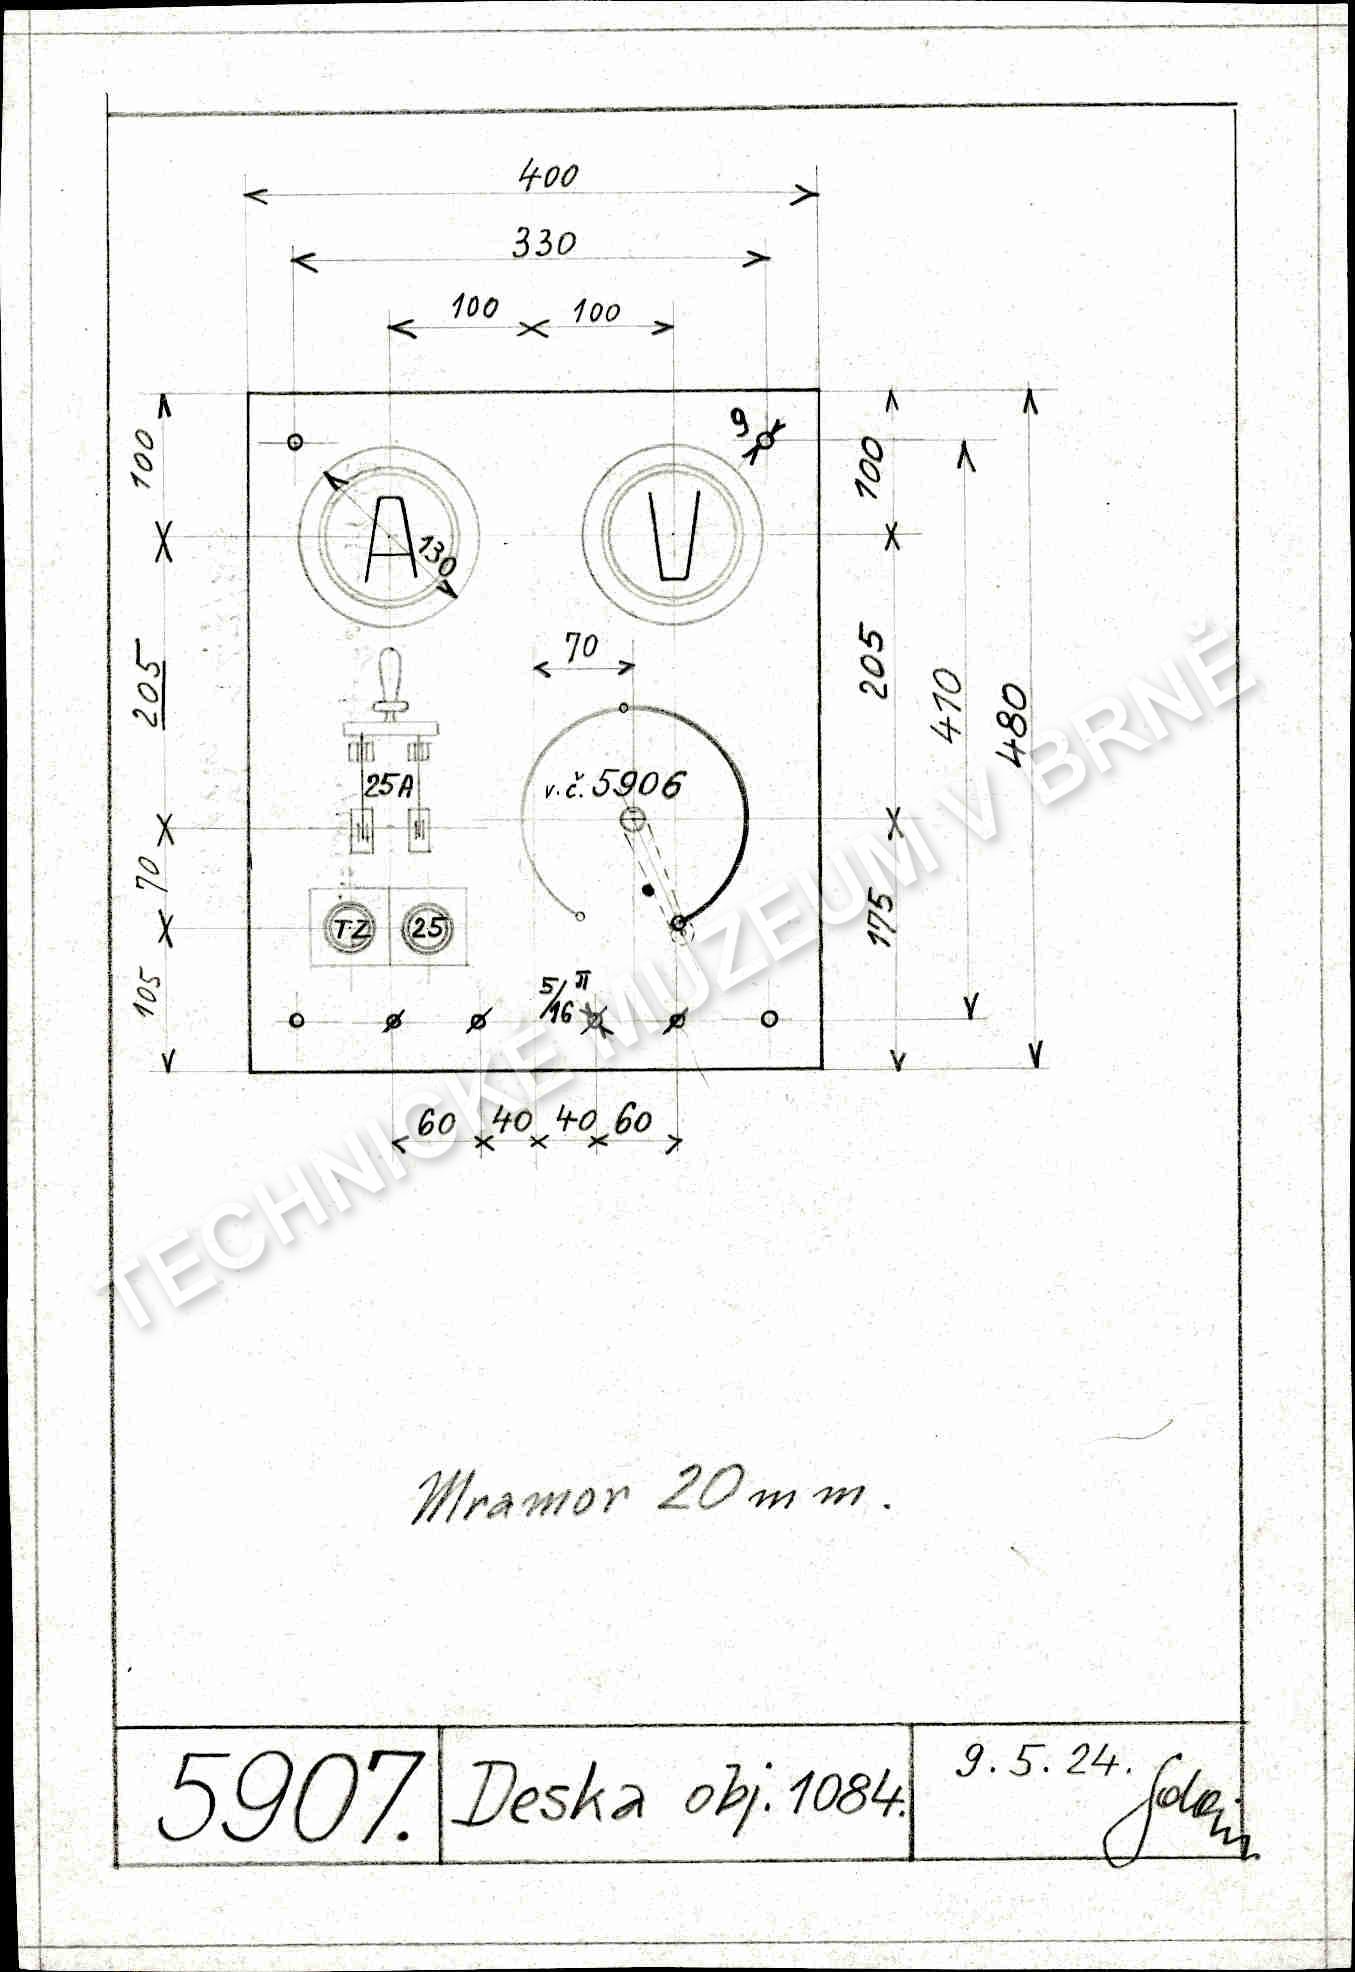 400
330
100 100
9
100
100
A
V
130
205
205
410
480
70
25A
v.č. 5906
70
175
T·Z 25
105
5/16"
60 40 40 60
TECHNICKÉ MUZEUM V BRNĚ
Mramor 20 mm.
5907.
Deska obj. 1084.
9.5.24.